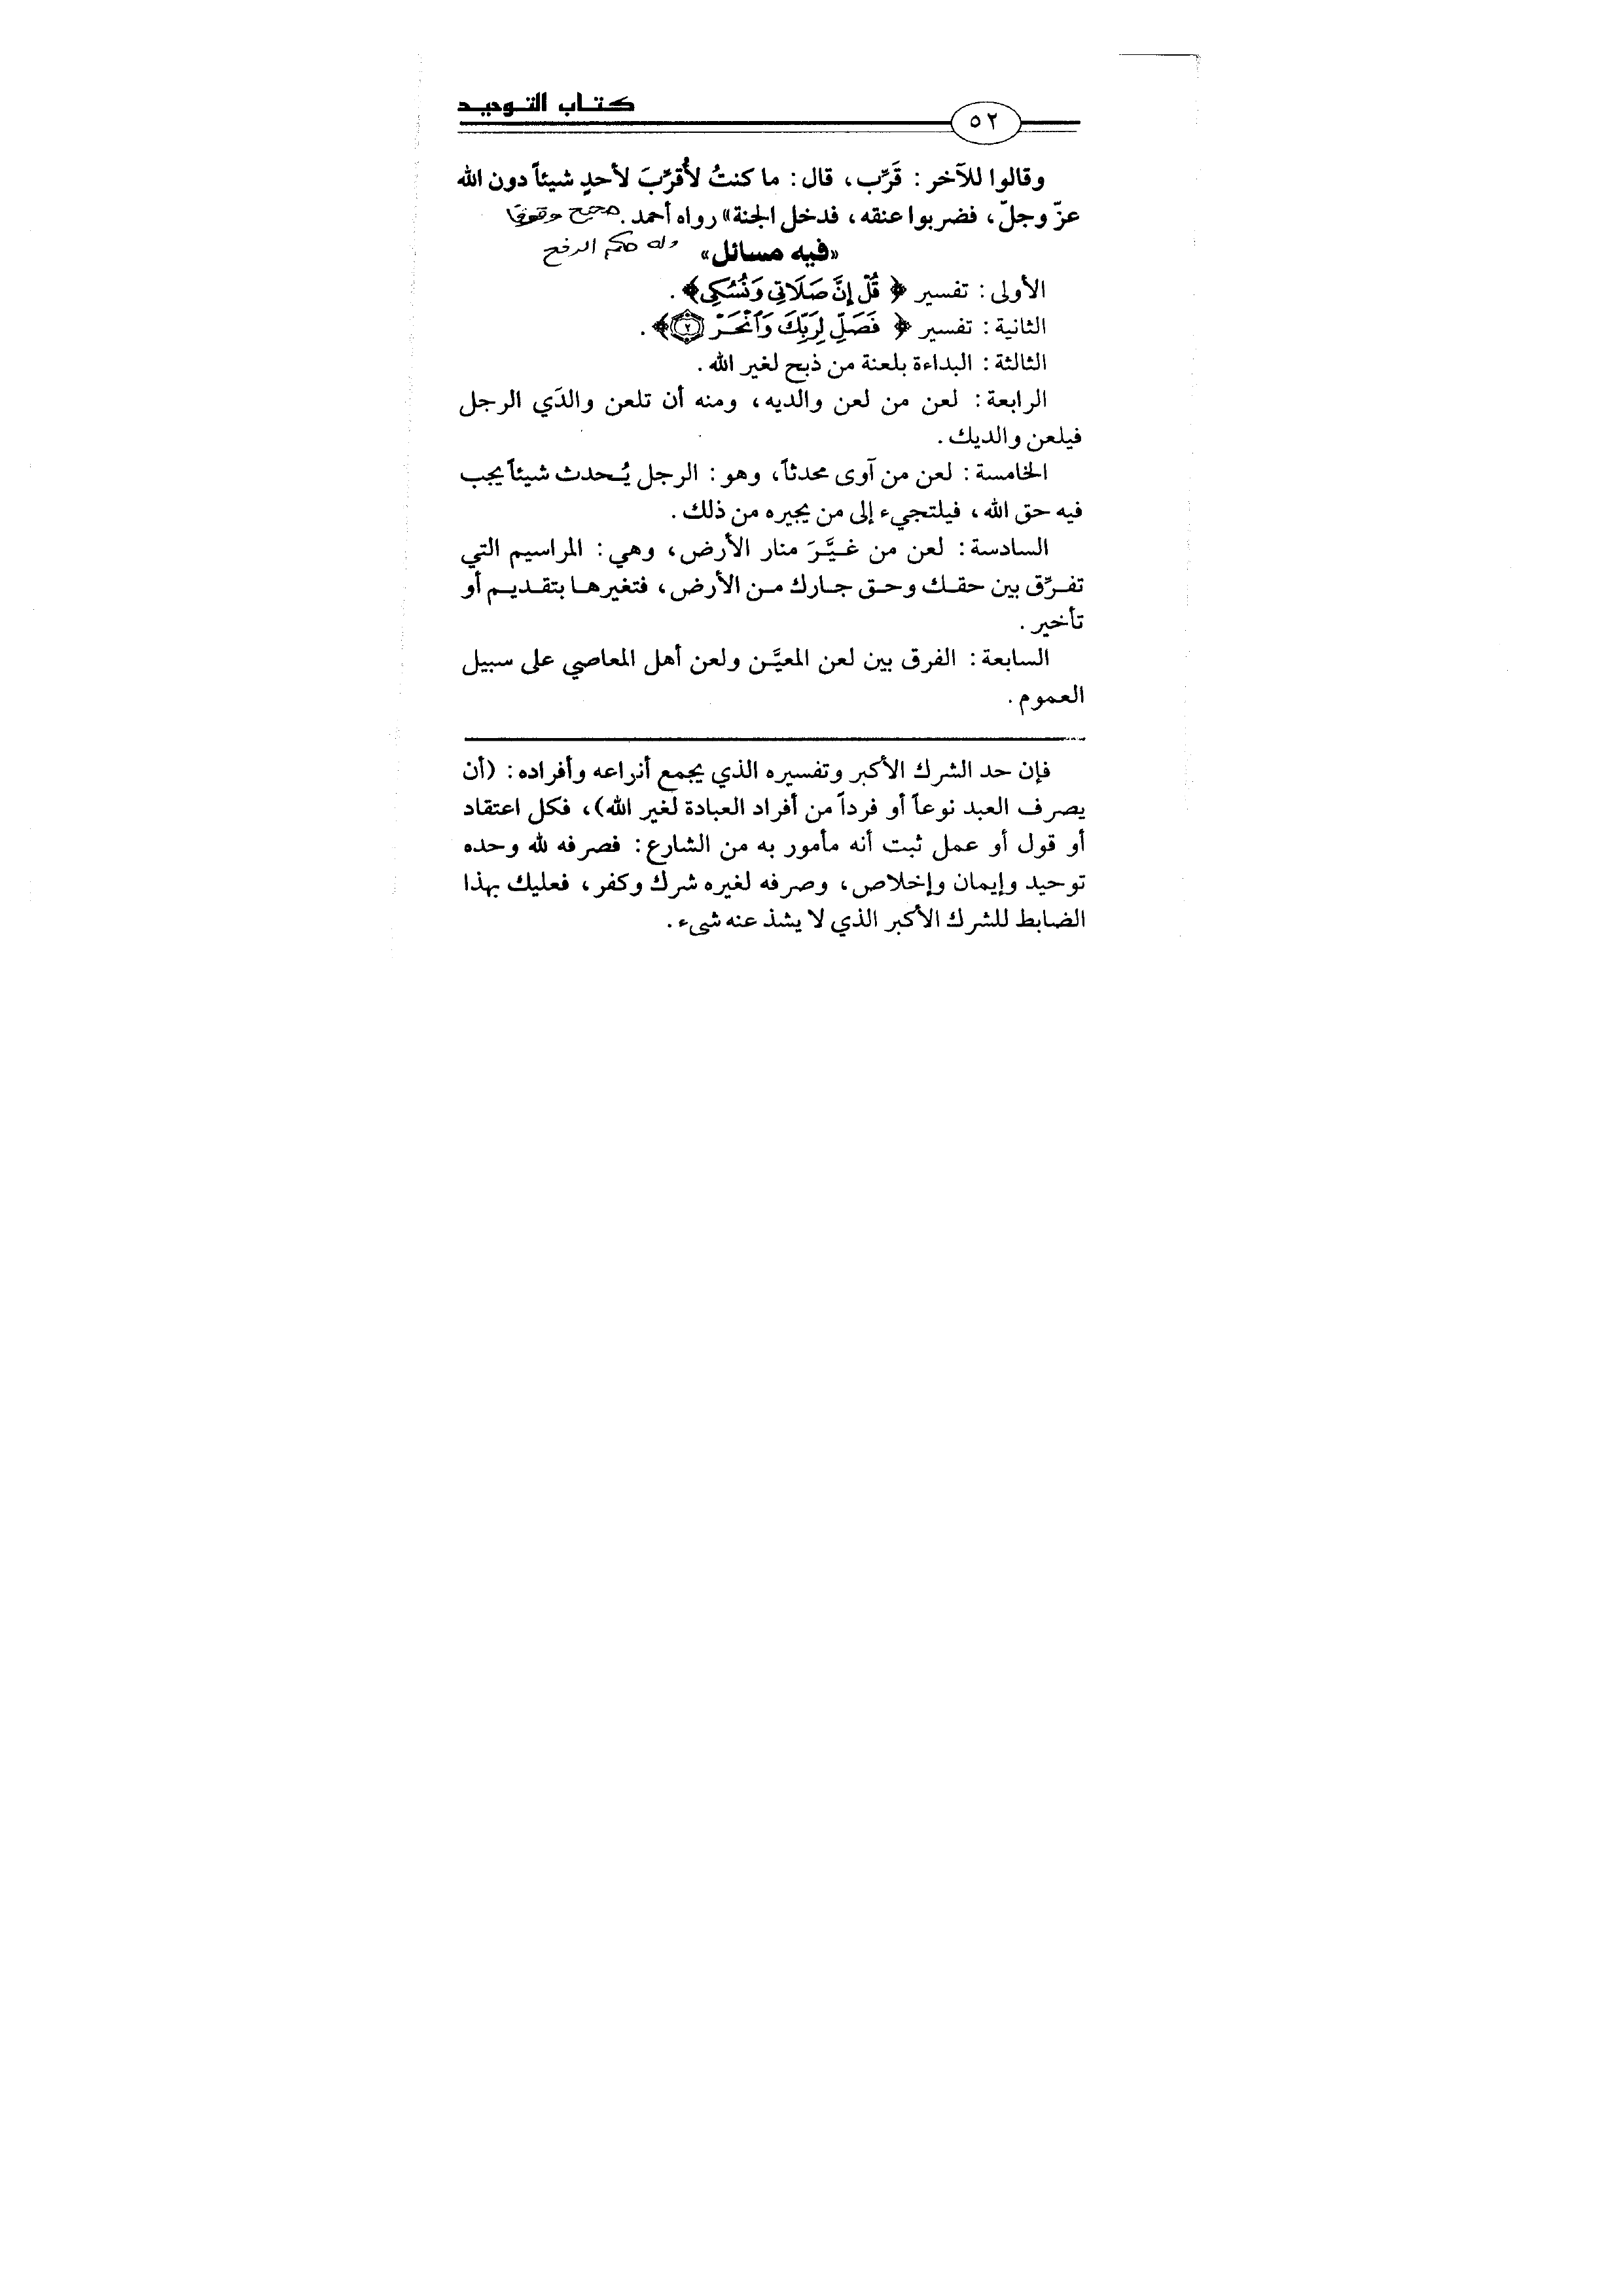 كتاب التوحيد
٥٢
وقالوا للآخر: قَرِّب، قال: ما كنتُ لأُقرِّبَ لأحدٍ شيئاً دون الله
عزّ وجلّ، فضربوا عنقه، فدخل الجنة» رواه أحمد. صحيح موقوفا
وله حكم الرفع
«فيه مسائل»
الأولى: تفسير ﴿قُلْ إِنَّ صَلَاتِي وَنُسُكِي﴾.
الثانية: تفسير ﴿فَصَلِّ لِرَبِّكَ وَٱنْحَرْ ٢﴾.
الثالثة: البداءة بلعنة من ذبح لغير الله.
الرابعة: لعن من لعن والديه، ومنه أن تلعن والدَي الرجل
فيلعن والديك.
الخامسة: لعن من آوى محدثاً، وهو: الرجل يُحدث شيئاً يجب
فيه حق الله، فيلتجيء إلى من يجيره من ذلك.
السادسة: لعن من غيَّرَ منار الأرض، وهي: المراسيم التي
تفرِّق بين حقك وحق جارك من الأرض، فتغيرها بتقديم أو
تأخير.
السابعة: الفرق بين لعن المعيَّن ولعن أهل المعاصي على سبيل
العموم.
فإن حد الشرك الأكبر وتفسيره الذي يجمع أنراعه وأفراده: (أن
يصرف العبد نوعاً أو فرداً من أفراد العبادة لغير الله)، فكل اعتقاد
أو قول أو عمل ثبت أنه مأمور به من الشارع: فصرفه لله وحده
توحيد وإيمان وإخلاص، وصرفه لغيره شرك وكفر، فعليك بهذا
الضابط للشرك الأكبر الذي لا يشذ عنه شيء.